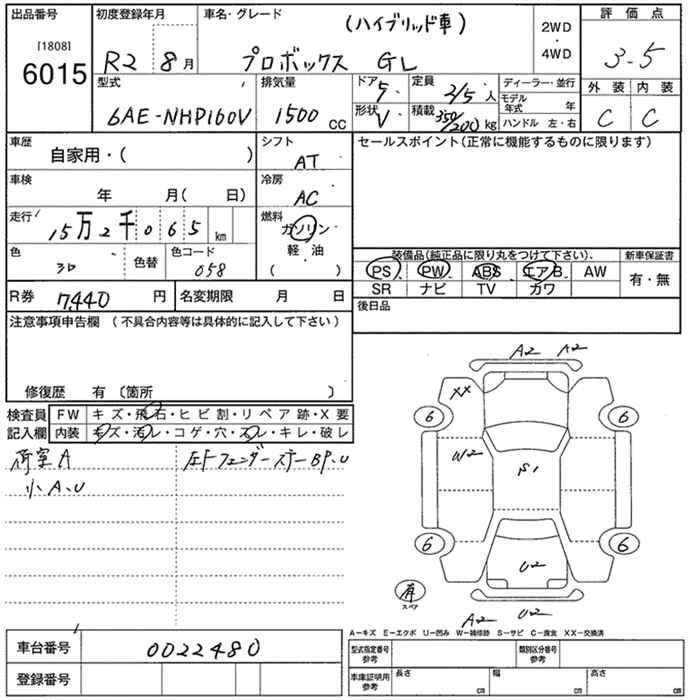 出品番号
[1808]
6015
初度登録年月
R2 8月
車名・グレード
(ハイブリッド車)
プロボックス GL
2WD
・
4WD
評価点
3.5
外装 内装
C C
型式
6AE-NHP160V
排気量
1500 cc
ドア 5
定員 2/5 人
形状 V
積載 350/200 kg
ディーラー・並行
モデル年式 年
ハンドル 左・右
車歴
自家用・( )
シフト
AT
セールスポイント(正常に機能するものに限ります)
車検
年 月( 日)
冷房
AC
走行
15万2千065 km
燃料
ガソリン
軽・油
( )
色
色替
色コード
058
装備品(純正品に限り丸をつけて下さい).
新車保証書
PS PW ABS エアB AW
有・無
SR ナビ TV カワ
R券 7,440 円
名変期限 月 日
後日品
注意事項申告欄 (不具合内容等は具体的に記入して下さい)
修復歴 有 〔箇所 〕
検査員記入欄
FW キズ・飛石・ヒビ割・リペア跡・X要
内装 キズ・汚レ・コゲ・穴・スレ・キレ・破レ
荷室A
小A、U
A2 A2
XX
6 6
W2
S1
6 6
U2
有
スペア
A2 U2
A-キズ E-エクボ U-凹み W-補修跡 S-サビ C-腐食 XX-交換済
車台番号 0022480
登録番号
型式指定番号
参考
類別区分番号
参考
車庫証明用
参考
長さ cm
幅 cm
高さ cm